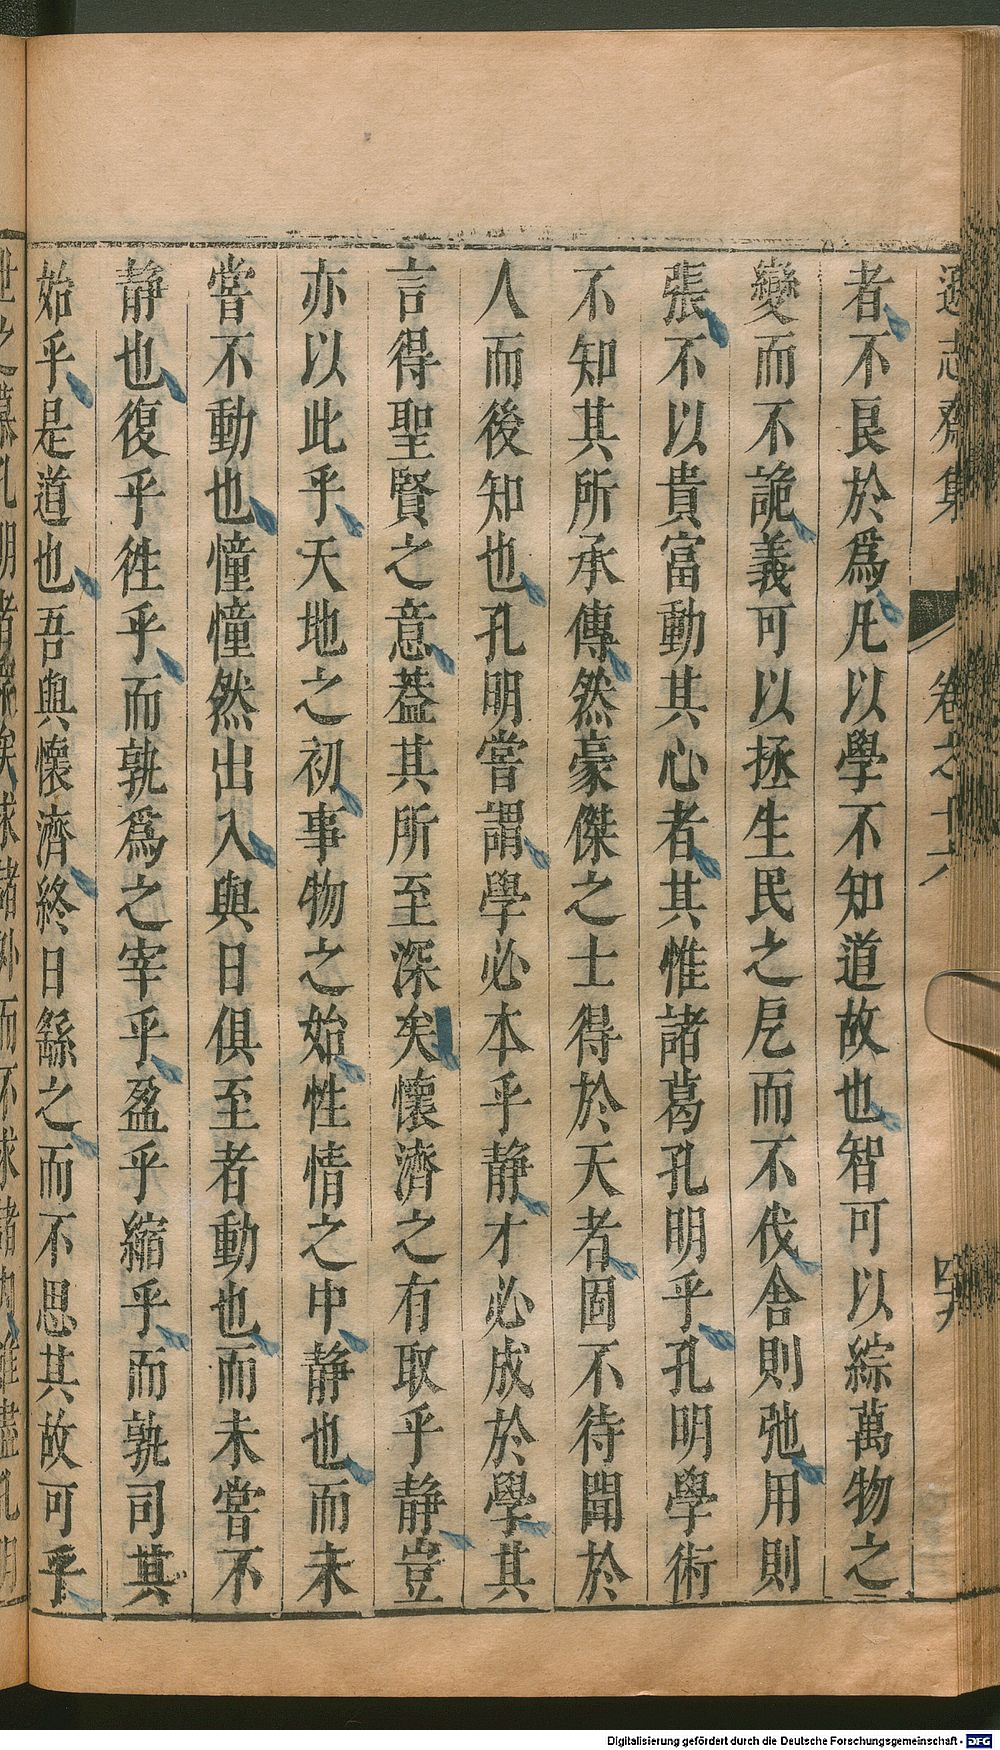 遜志齋集 卷之十六
者不艮於爲凡以學不知道故也智可以綜萬物之
變而不詭義可以拯生民之戹而不伐舍則弛用則
張不以貴富動其心者其惟諸葛孔明乎孔明學術
不知其所承傳然豪傑之士得於天者固不待聞於
人而後知也孔明嘗謂學必本乎静才必成於學其
言得聖賢之意葢其所至深矣懷濟之有取乎静豈
亦以此乎天地之初事物之始性情之中静也而未
嘗不動也憧憧然出入與日俱至者動也而未嘗不
静也復乎徃乎而孰爲之宰乎盈乎縮乎而孰司其
始乎是道也吾與懷濟終日繇之而不思其故可乎
Digitalisierung gefördert durch die Deutsche Forschungsgemeinschaft - DFG